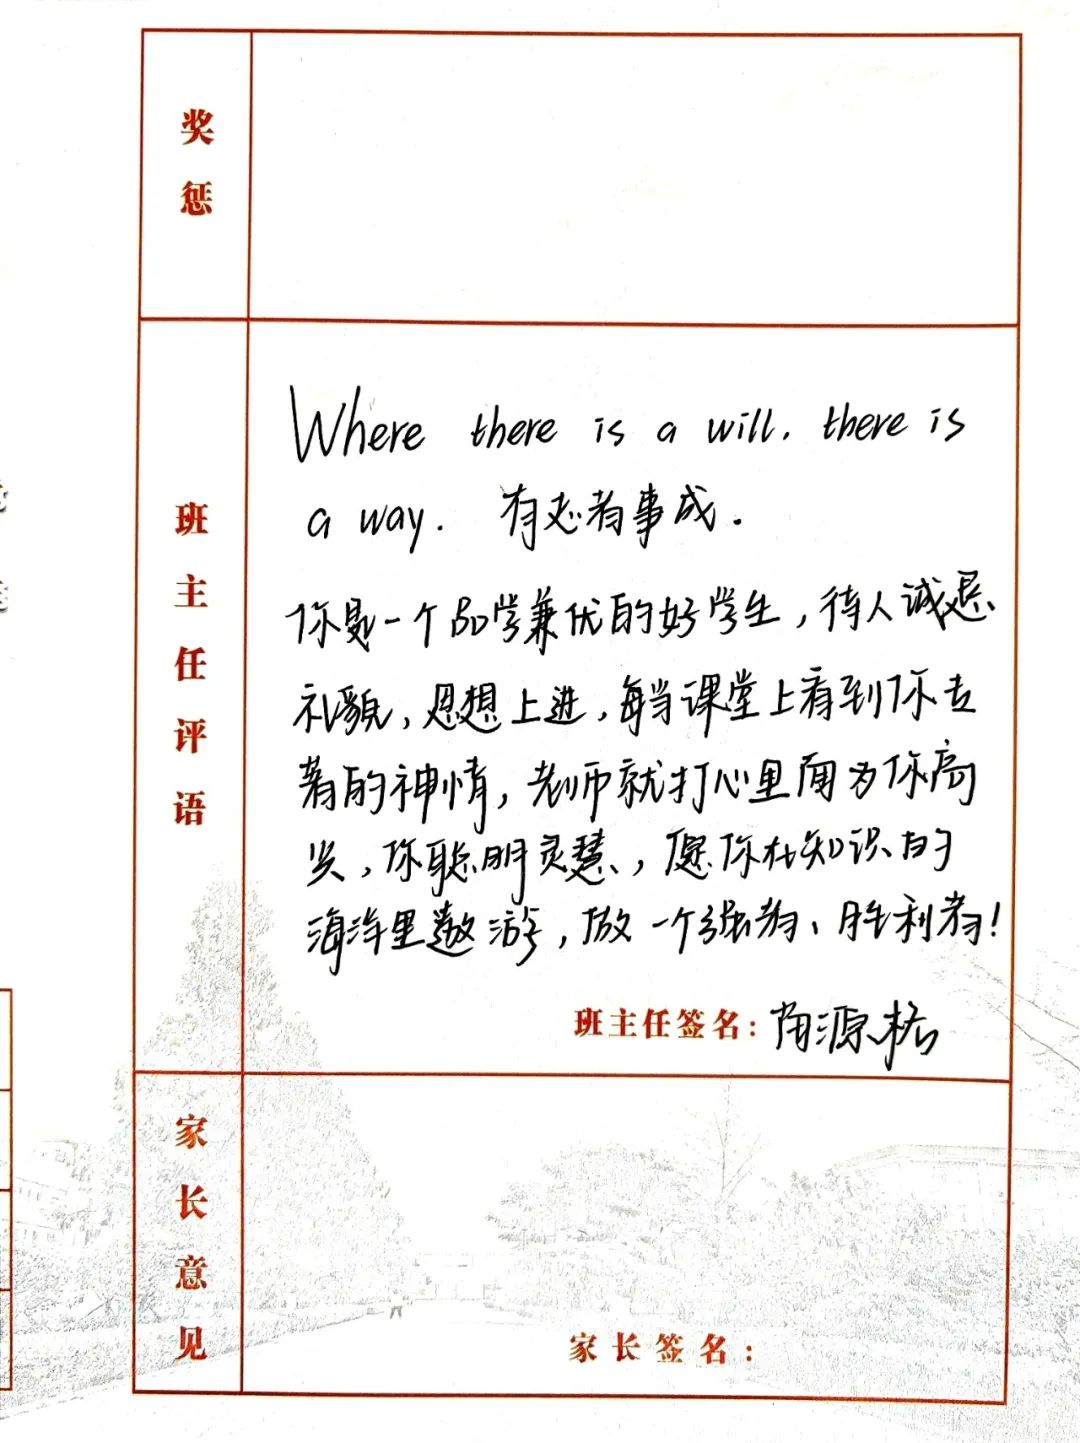 奖惩
班主任评语
Where there is a will. there is
a way. 有志者事成.
你是一个品学兼优的好学生，待人诚恳
礼貌，思想上进，每当课堂上看到你专
着的神情，老师就打心里面为你高
兴，你聪明灵慧，愿你在知识的
海洋里遨游，做一个强者、胜利者！
班主任签名：陶源
家长意见
家长签名：